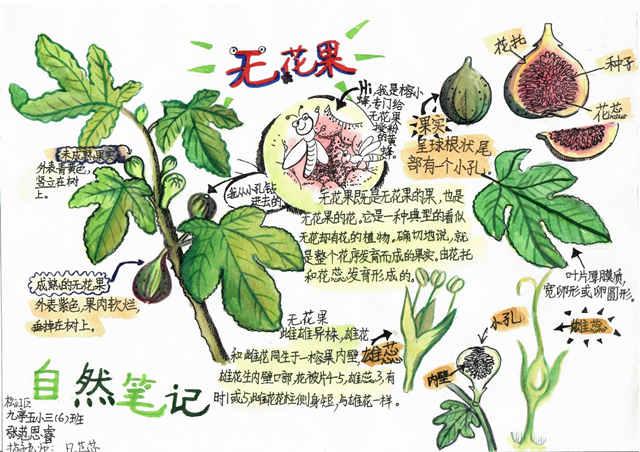 无花果
Hi,我是榕小
蜂,专门给
无花果
授粉的
黄蜂。
我从小孔钻
进去的
果实
呈球根状尾
部有个小孔。
花托
种子
花蕊
外表青黄色,
竖立在树
上。
成熟的无花果
外表紫色,果内软烂,
垂掉在树上。
无花果既是无花果的果,也是
无花果的花。它是一种典型的看似
无花却有花的植物。确切地说,就
是整个花序发育而成的果实。由花托
和花蕊发育形成的。
叶片厚膜质,
宽卵形或卵圆形。
无花果
雌雄异株,雄花
和雌花同生于一榕果内壁,
雄花生内壁口部,花被片4-5,雄蕊3,有
时1或5,雌花花柱侧身短,与雄花一样。
雄蕊
小孔
内壁
雌蕊
自然笔记
九亭五小三(6)班
张范思睿
指导老师: